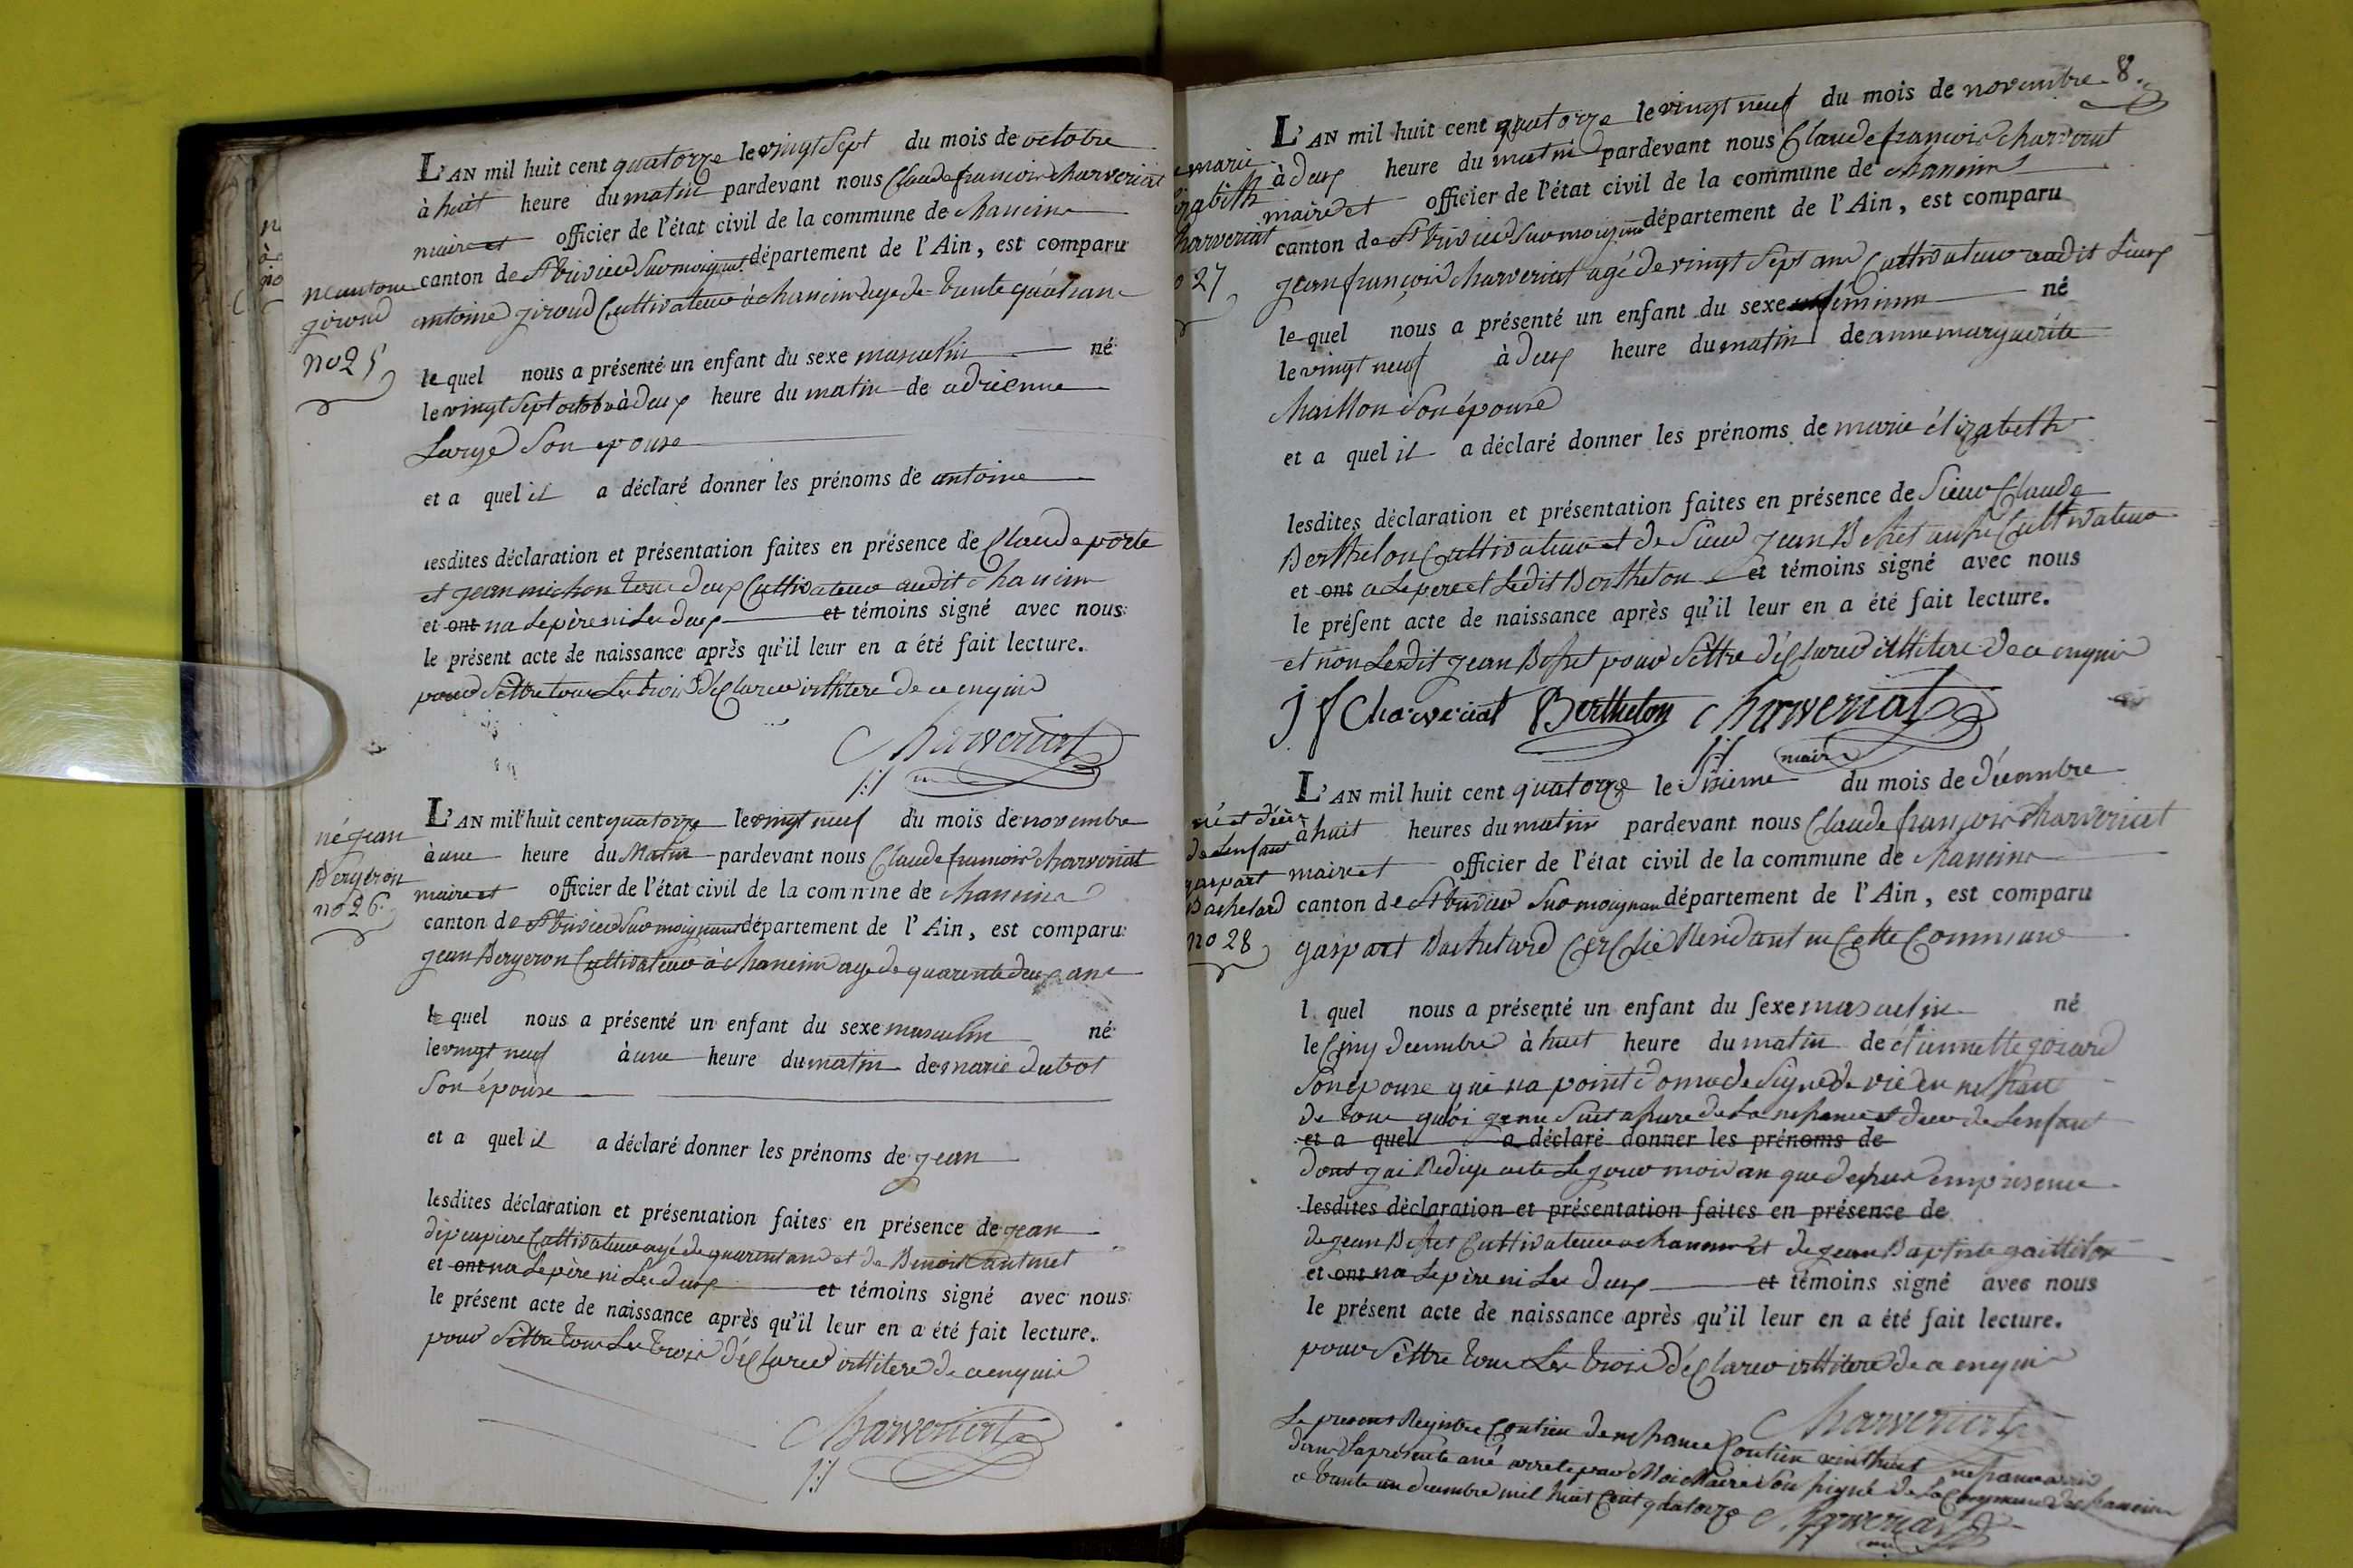 né antoine
giroud
no 25
L'AN mil huit cent quatorze le vingt sept du mois de octobre
à huit heure du matin pardevant nous Claude francois Charveriat
maire et officier de l'état civil de la commune de Chaneins
canton de St trivier sur moignans département de l'Ain, est comparu
antoine giroud Cultivateur à Chaneins age de trente quátre ans
le quel nous a présenté un enfant du sexe masculin né
le vingt sept octobre à deux heure du matin de adrienne
Large son epouse
et a quel il a déclaré donner les prénoms de antoine
lesdites déclaration et présentation faites en présence de Claude porte
et jean michon tous deux Cultivateur audit Chaneins
et ont na le père ni les deux et témoins signé avec nous
le présent acte de naissance après qu'il leur en a été fait lecture.
pour sêttre tous les trois déClarer illitere de ce enquis
Charveriat
né jean
Bergeron
no 26.
L'AN mil huit cent quatorze le vingt neuf du mois de novembre
à une heure du Matin pardevant nous Claude francois Charveriat
maire et officier de l'état civil de la commune de Chaneins
canton de St trivier sur moignans département de l'Ain, est comparu
jean Bergeron Cultivateur à Chaneins age de quarente deux ans
le quel nous a présenté un enfant du sexe masculin né
le vingt neuf à une heure du matin de marie dubost
son épouse
et a quel il a déclaré donner les prénoms de jean
lesdites déclaration et présentation faites en présence de jean
Cultivateur agé de quarent ans et de Benoit
et ont na le père ni les deux et témoins signé avec nous
le présent acte de naissance après qu'il leur en a été fait lecture.
pour sêttre tous les trois déClarer illitere de ce enquis
Charveriat
8.
marie
Charveriat
27
L'AN mil huit cent quatorze le vingt neuf du mois de novembre
à deux heure du matin pardevant nous Claude francois Charveriat
maire et officier de l'état civil de la commune de Chaneins
canton de St trivier sur moignans département de l'Ain, est comparu
jean françois Charveriat agé de vingt sept ans Cultivateur audit lieux
le quel nous a présenté un enfant du sexe féminin né
le vingt neuf à deux heure du matin de anne marguerite
Chaillon son épouse
et a quel il a déclaré donner les prénoms de marie élizabeth
lesdites déclaration et présentation faites en présence de sieur Claude
Berthelon Cultivateur et de sieur jean autre Cultivateur
et ont a le pere et ledit Berthelon et témoins signé avec nous
le présent acte de naissance après qu'il leur en a été fait lecture.
et non ledit jean pour sêttre déClarer illitere de ce enquis
J f Charveriat Berthelon Charveriat
maire
né et décès
de lenfant
gaspart
Bachelard
no 28
L'AN mil huit cent quatorze le sixieme du mois de décembre
à huit heures du matin pardevant nous Claude françois Charveriat
maire et officier de l'état civil de la commune de Chaneins
canton de St trivier sur moignans département de l'Ain, est comparu
gaspart Bachelard Residant en Cette Commune
l quel nous a présenté un enfant du sexe masculin né
le Cinq decembre à huit heure du matin de étiennette
son épouse qui na point donné de signe de vie en
de tous quoi de la et de lenfant
et a quel a déclaré donner les prénoms de
dont jai Redige acte le jour mois an que dessus
lesdites déclaration et présentation faites en présence de
de jean Cultivateur a Chaneins et de jean Baptiste
et ont na le père ni les deux et témoins signé avec nous
le présent acte de naissance après qu'il leur en a été fait lecture.
pour sêttre tous les trois déClarer illitere de ce enquis
Charveriat
Le present Registre Contien
dans la presente ané arrete par Moi Maire sou signé de la Commune de Chaneins
trente un decembre mil huit Cent quatorze Charveriat